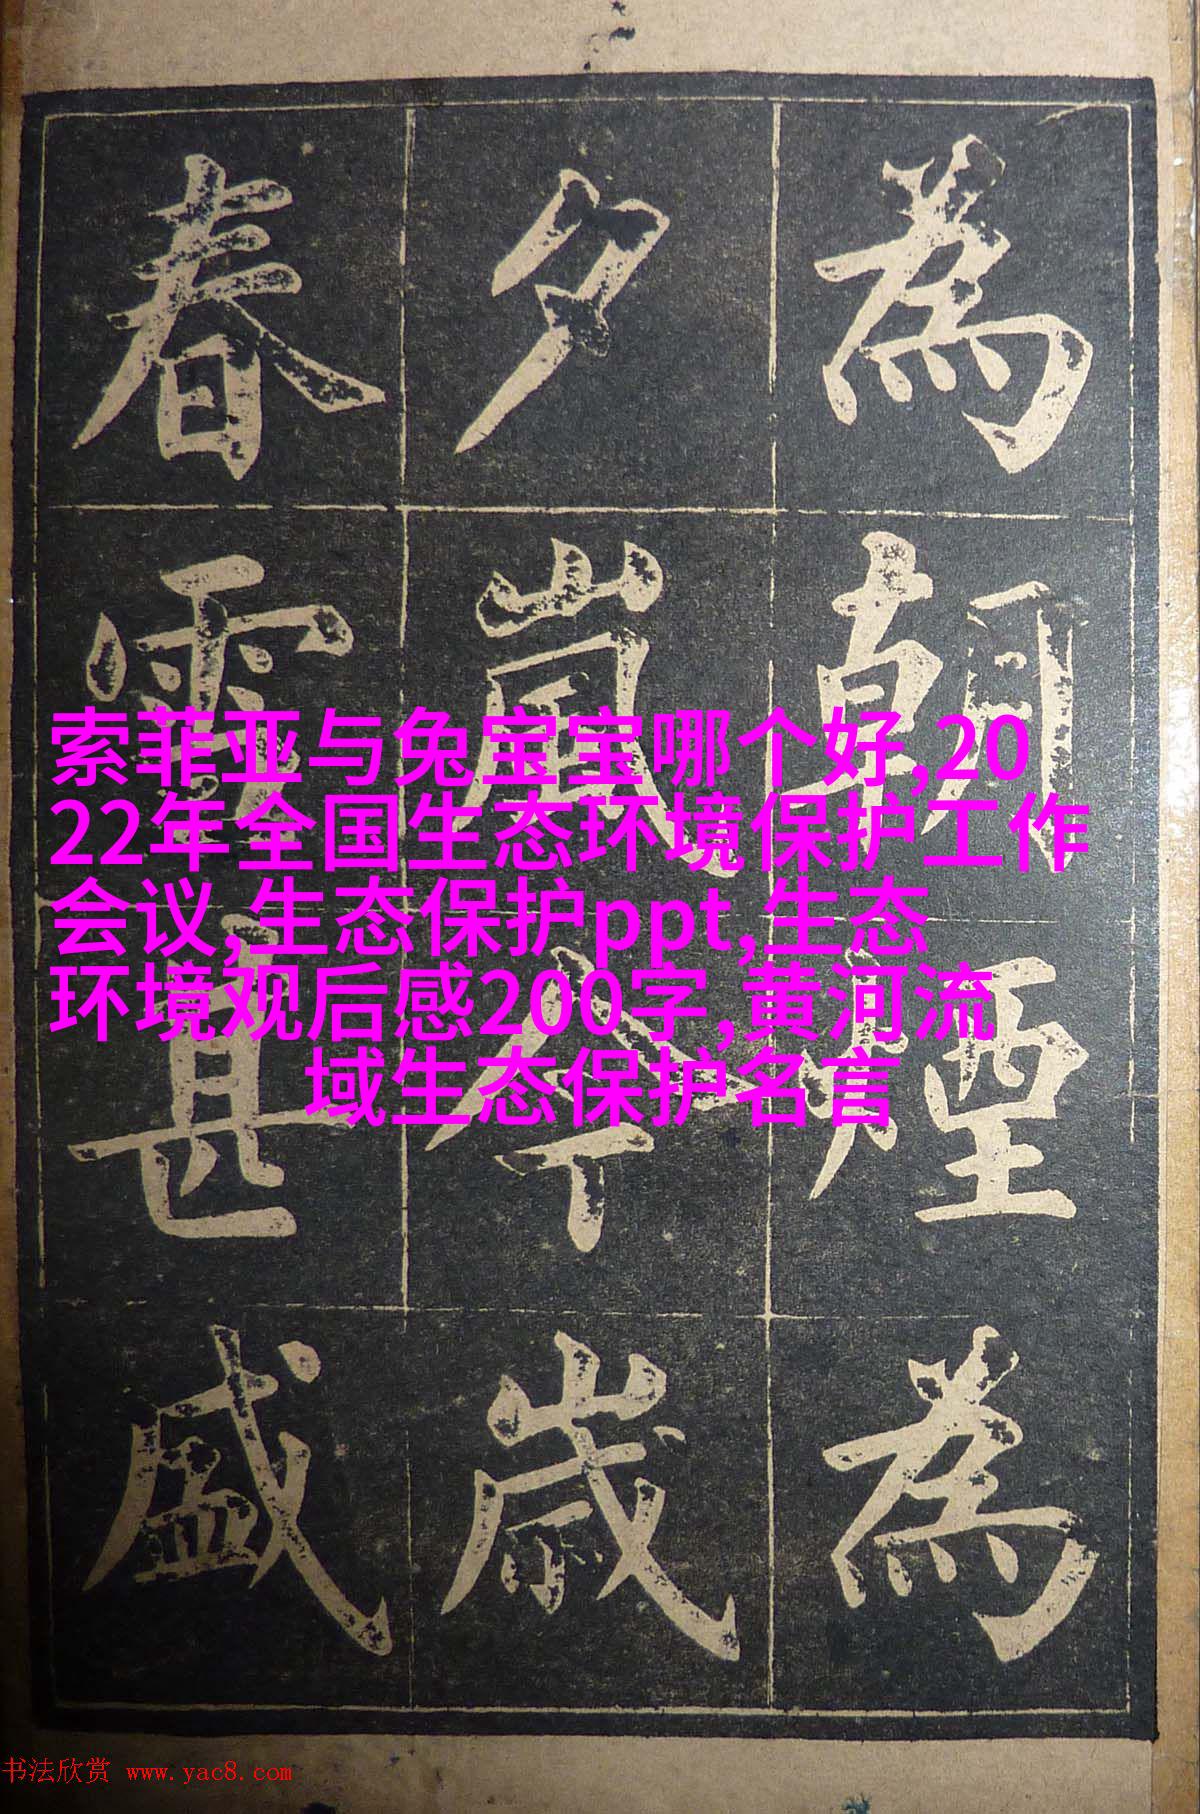 為朝煙為
夕嵐今歳
春雪甚盛
索菲亚与兔宝宝哪个好,20
22年全国生态环境保护工作
会议,生态保护ppt,生态
环境观后感200字,黄河流
域生态保护名言
书法欣赏 www.yac8.com